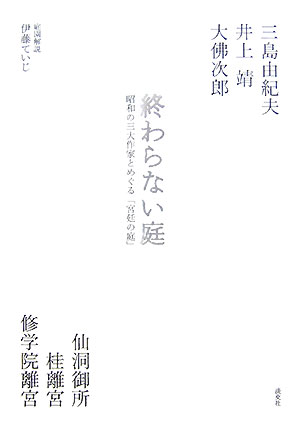 三島由紀夫
井上 靖
大佛次郎
終わらない庭
昭和の三大作家とめぐる「宮廷の庭」
庭園解説
伊藤ていじ
仙洞御所
桂離宮
修学院離宮
淡交社